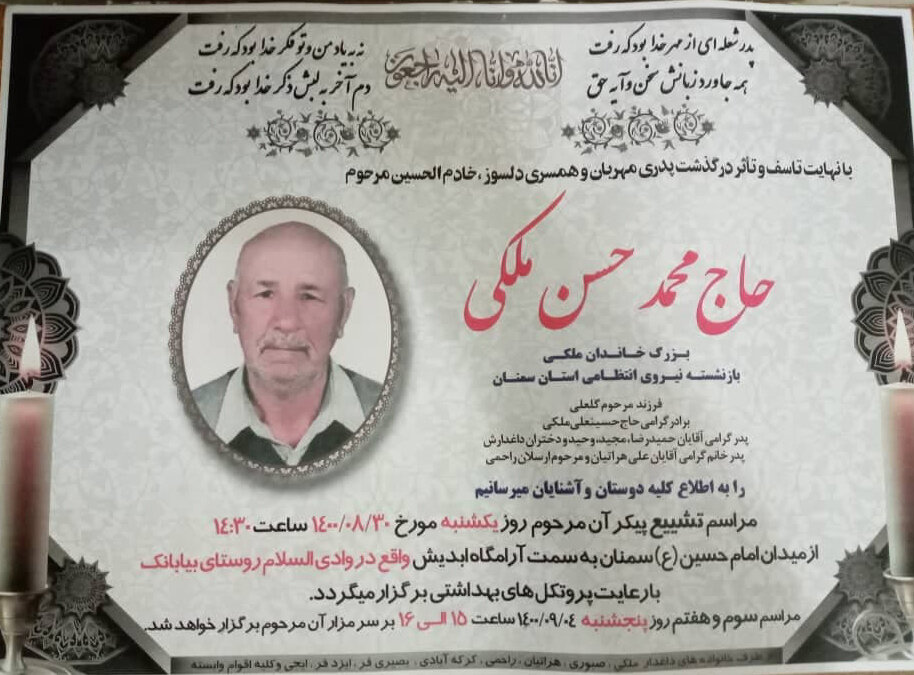 انا لله و انا الیه راجعون
پدر شعله ای از مهر خدا بود که رفت
نه به یاد من و تو فکر خدا بود که رفت
همه جا ورد زبانش سخن و آیه حق
دم آخر به لبش ذکر خدا بود که رفت
با نهایت تاسف و تأثر درگذشت پدری مهربان و همسری دلسوز، خادم الحسین مرحوم
حاج محمد حسن ملکی
بزرگ خاندان ملکی
بازنشسته نیروی انتظامی استان سمنان
فرزند مرحوم گلعلی
برادر گرامی حاج حسینعلی ملکی
پدر گرامی آقایان حمیدرضا، مجید، وحید و دختران داغدارش
پدر خانم گرامی آقایان علی هراتیان و مرحوم ارسلان راحمی
را به اطلاع کلیه دوستان و آشنایان میرسانیم
مراسم تشییع پیکر آن مرحوم روز یکشنبه مورخ ۱۴۰۰/۰۸/۳۰ ساعت ۱۴:۳۰
از میدان امام حسین (ع) سمنان به سمت آرامگاه ابدیش واقع در وادی السلام روستای بیابانک
با رعایت پروتکل های بهداشتی برگزار میگردد.
مراسم سوم و هفتم روز پنجشنبه ۱۴۰۰/۰۹/۰۴ ساعت ۱۵ الی ۱۶ بر سر مزار آن مرحوم برگزار خواهد شد.
طرف خانواده های داغدار ملکی، صبوری، هراتیان، راحمی، کرکه آبادی، بصیری فر، ایزد فر، ابجی و کلیه اقوام وابسته